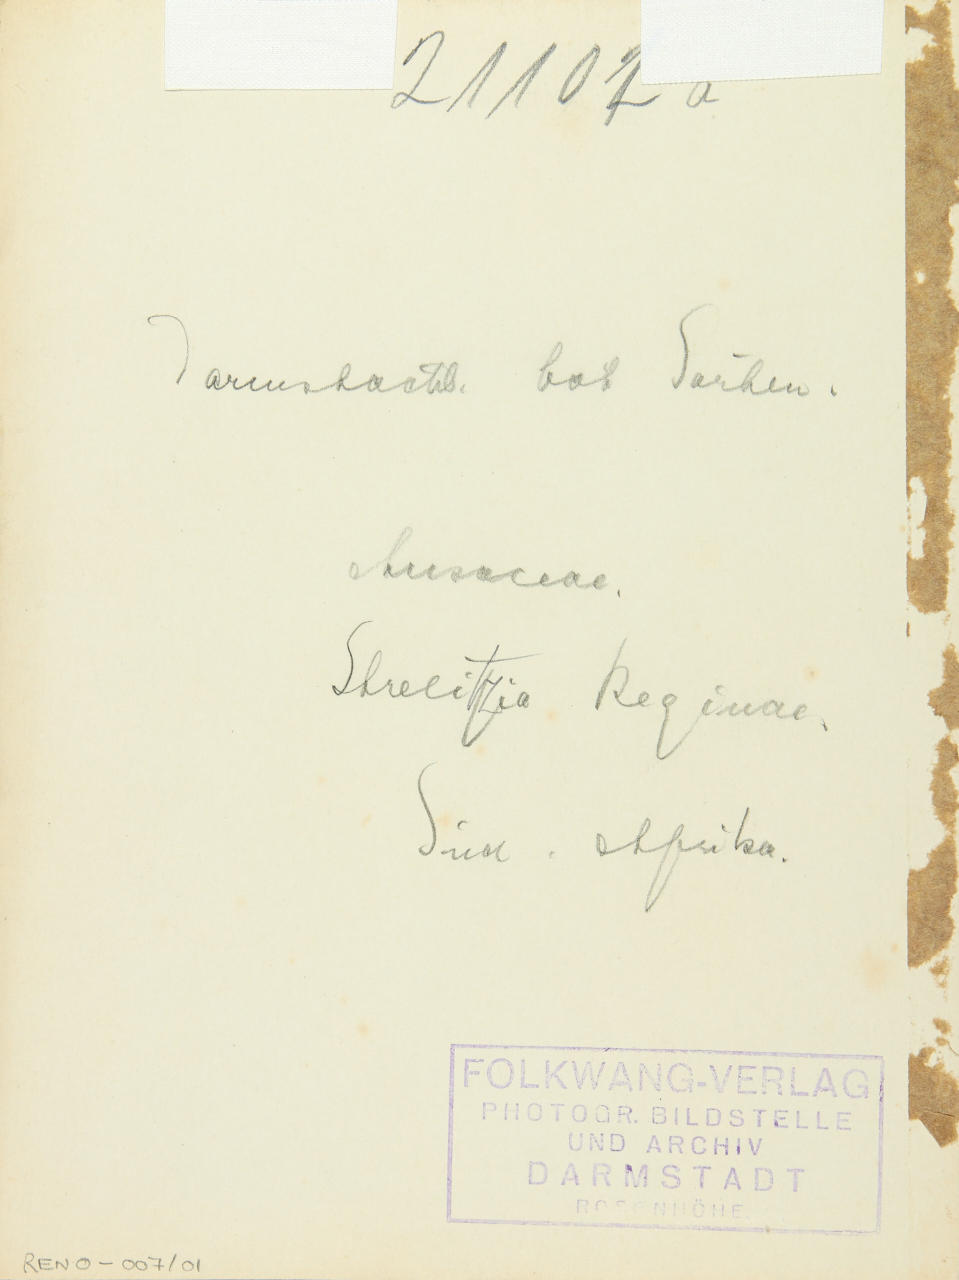 21102 a
Darmstadt. bot Garten.
Musaceae.
Strelitzia Reginae.
Süd. Afrika.
FOLKWANG-VERLAG
PHOTOGR. BILDSTELLE
UND ARCHIV
DARMSTADT
ROSENHÖHE
RENO-007/01